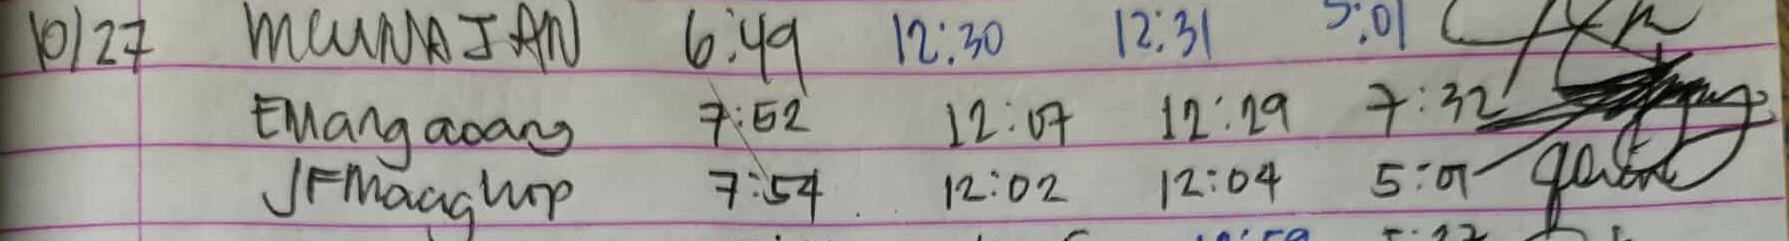 10/27 MCUNAJAN 6:49 12:30 12:31 5:01
EMangaoang 7:52 12:07 12:29 7:32
7:54 12:02 12:04 5:01